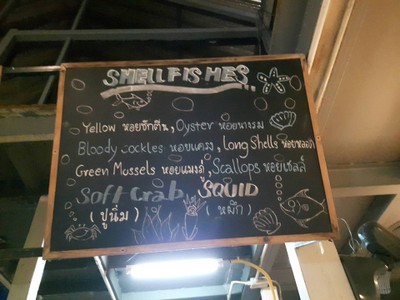 SHELLFISHES
Yellow หอยชักตีน, Oyster หอยนางรม
Bloody cockles หอยแครง, Long Shells หอยหลอด
Green Mussels หอยแมลงภู่, Scallops หอยเชลล์
Soft Crab, SQUID
(ปูนิ่ม) (หมึก)